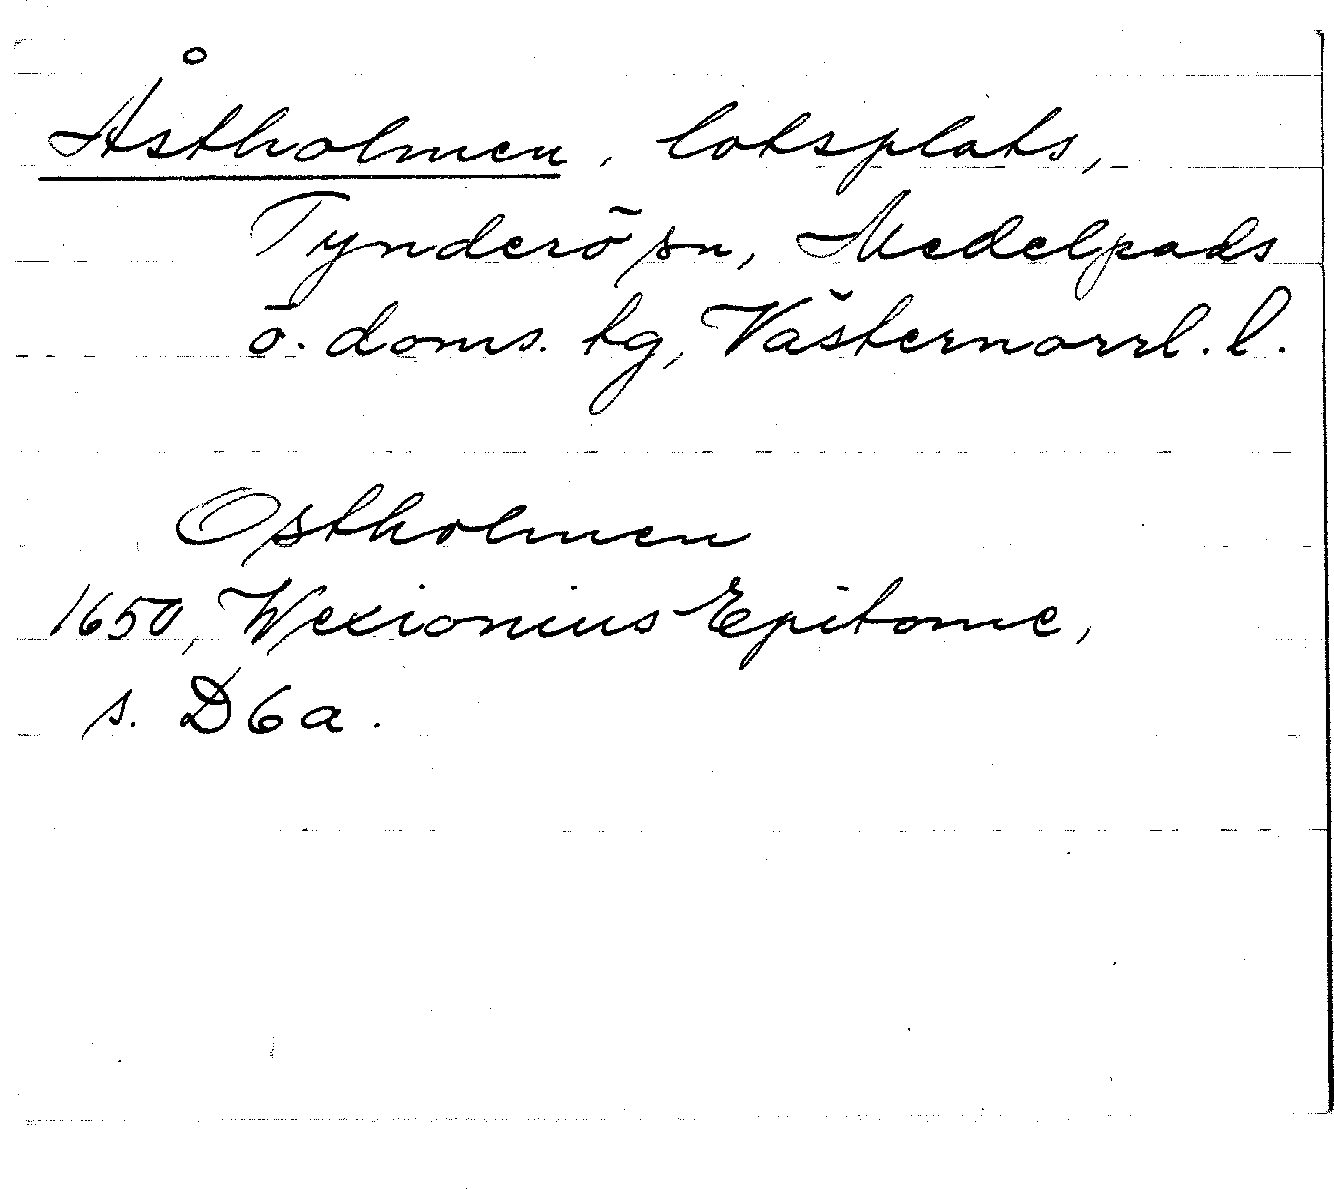 Åstholmen, lotsplats,
Tynderö sn, Medelpads
ö. doms. tg, Västernorrl. l.
Ostholmen
1650, Wexionius Epitome,
s. D6a.